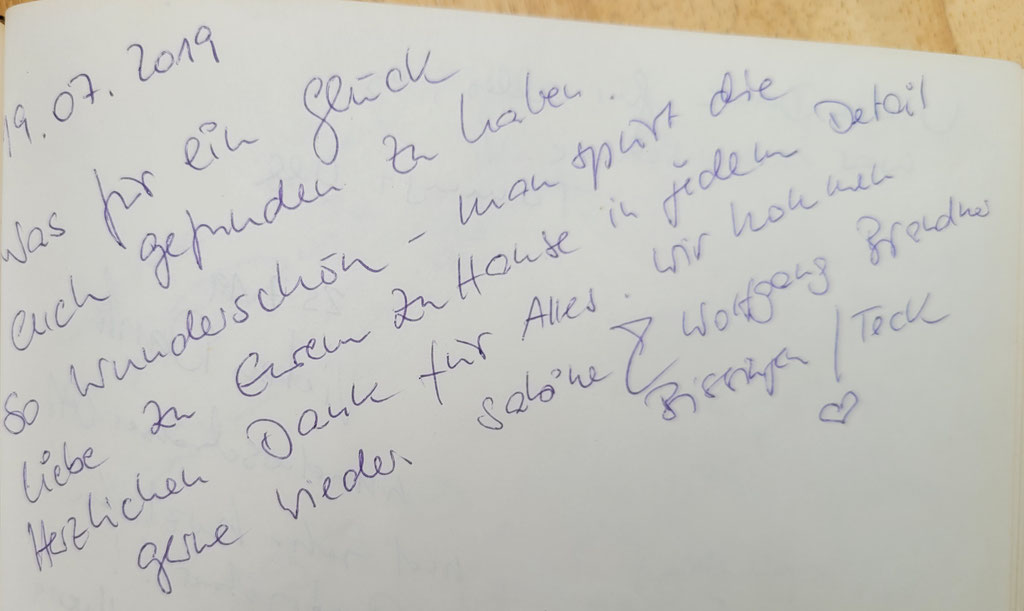 19.07.2019
Was für ein Glück
euch gefunden zu haben.
So wunderschön - man spürt die
Liebe zu Eurem zu Hause in jedem Detail
Herzlichen Dank für Alles. Wir kommen
gerne wieder. Sabine & Wolfgang Brendner
Bissingen / Teck
♡